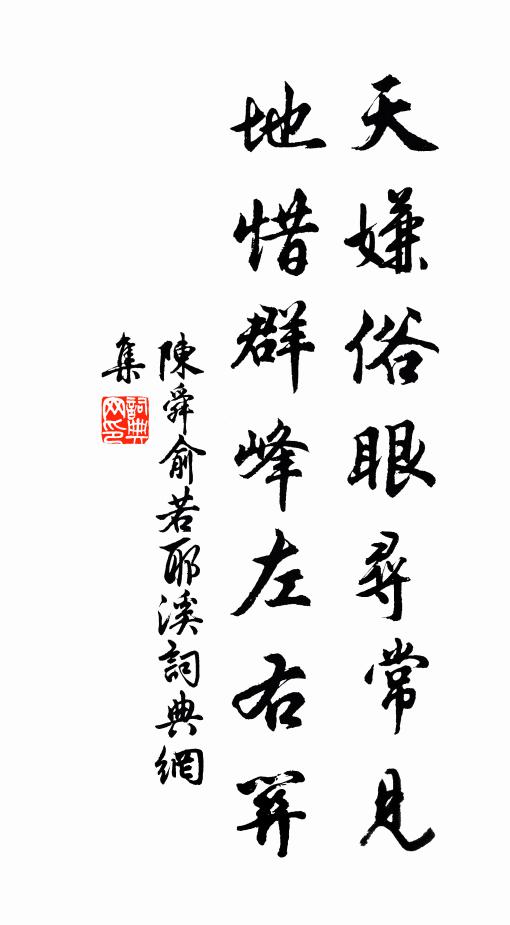 天嫌俗眼尋常見
地惜群峰左右開
陳舜俞若耶溪詞典網
集
詞典
网印